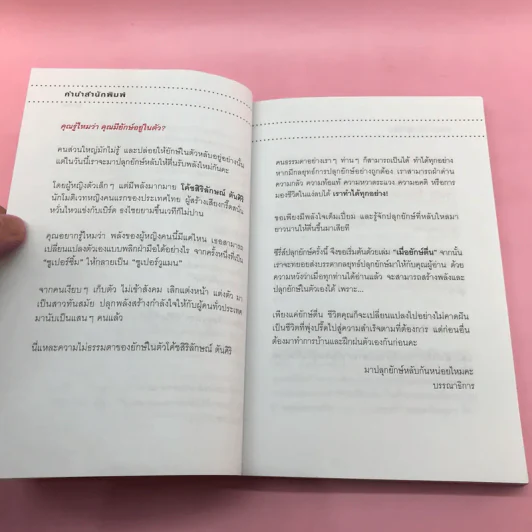 คำนำสำนักพิมพ์
คุณรู้ไหมว่า คุณมียักษ์อยู่ในตัว?
คนส่วนใหญ่มักไม่รู้ และปล่อยให้ยักษ์ในตัวหลับอยู่อย่างนั้น
แต่ในวันนี้เราจะมาปลุกยักษ์หลับให้ตื่นรับพลังใหม่กันค่ะ
โดยผู้หญิงตัวเล็กๆ แต่มีพลังมากมาย โค้ชสิริลักษณ์ ตันศิริ
นักไมติเวทหญิงคนแรกของประเทศไทย ผู้สร้างเสียงกรี๊ดสนั่น
หวั่นไหวแข่งกับเบิร์ด ธงไชยยามขึ้นเวทีก็ไม่ปาน
คุณอยากรู้ไหมว่า พลังของผู้หญิงคนนี้มีแค่ไหน เธอสามารถ
เปลี่ยนแปลงตัวเองแบบพลิกฝ่ามือได้อย่างไร จากครั้งหนึ่งที่เป็น
"ซูเปอร์ซึม" ให้กลายเป็น "ซูเปอร์วูแมน"
จากคนเงียบๆ เก็บตัว ไม่เข้าสังคม เลิกแต่งหน้า แต่งตัว มา
เป็นสาวทันสมัย ปลุกพลังสร้างกำลังใจให้กับผู้คนทั่วประเทศ
มานับเป็นแสนๆ คนแล้ว
นี่แหละความไม่ธรรมดาของยักษ์ในตัวโค้ชสิริลักษณ์ ตันศิริ
คนธรรมดาอย่างเราๆ ท่านๆ ก็สามารถเป็นได้ ทำได้ทุกอย่าง
หากมีกลยุทธ์การปลุกยักษ์อย่างถูกต้อง เราสามารถมีผ่าน
ความกลัว ความท้อแท้ ความหวาดระแวง ความอคติ หรือการ
มองชีวิตในแง่ลบได้ เราทำได้ทุกอย่าง!
ขอเพียงมีพลังใจเต็มเปี่ยม และรู้จักปลุกยักษ์ที่หลับใหลมา
ยาวนานให้ตื่นขึ้นมาเสียที
ซีรี่ส์ปลุกยักษ์ครั้งนี้ จึงขอเริ่มต้นด้วยเล่ม "เมื่อยักษ์ตื่น" จากนั้น
เราจะทยอยส่งบรรดากลยุทธ์ปลุกยักษ์มาให้กับคุณผู้อ่าน ด้วย
ความหวังว่าเมื่อทุกท่านได้อ่านแล้ว จะสามารถสร้างพลังและ
ปลุกยักษ์ในตัวเองได้ เพราะ...
เพียงแค่ยักษ์ตื่น ชีวิตคุณก็จะเปลี่ยนแปลงไปอย่างไม่คาดฝัน
เป็นชีวิตที่พุ่งปรี๊ดไปสู่ความสำเร็จตามที่ต้องการ แต่ก่อนอื่น
ต้องมาทำการบ้านและฝึกฝนตัวเองกันก่อนค่ะ
มาปลุกยักษ์หลับกันหน่อยไหมคะ
บรรณาธิการ